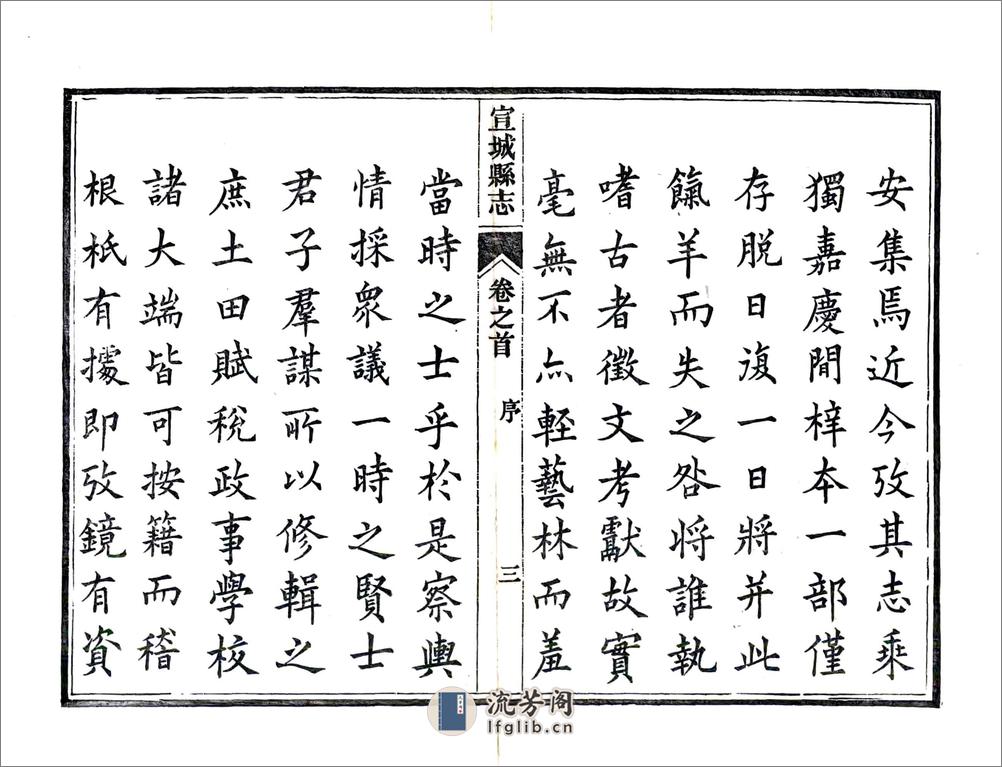 安集焉近今攷其志乘
獨嘉慶間梓本一部僅
存脱日復一日將并此
餼羊而失之咎將誰執
嗜古者徵文考獻故實
毫無不亦輕藝林而羞
宣城縣志
卷之首
序
三
當時之士乎於是察輿
情採衆議一時之賢士
君子羣謀所以修輯之
庶土田賦稅政事學校
諸大端皆可按籍而稽
根柢有據即攷鏡有資
流芳阁
lfglib.cn